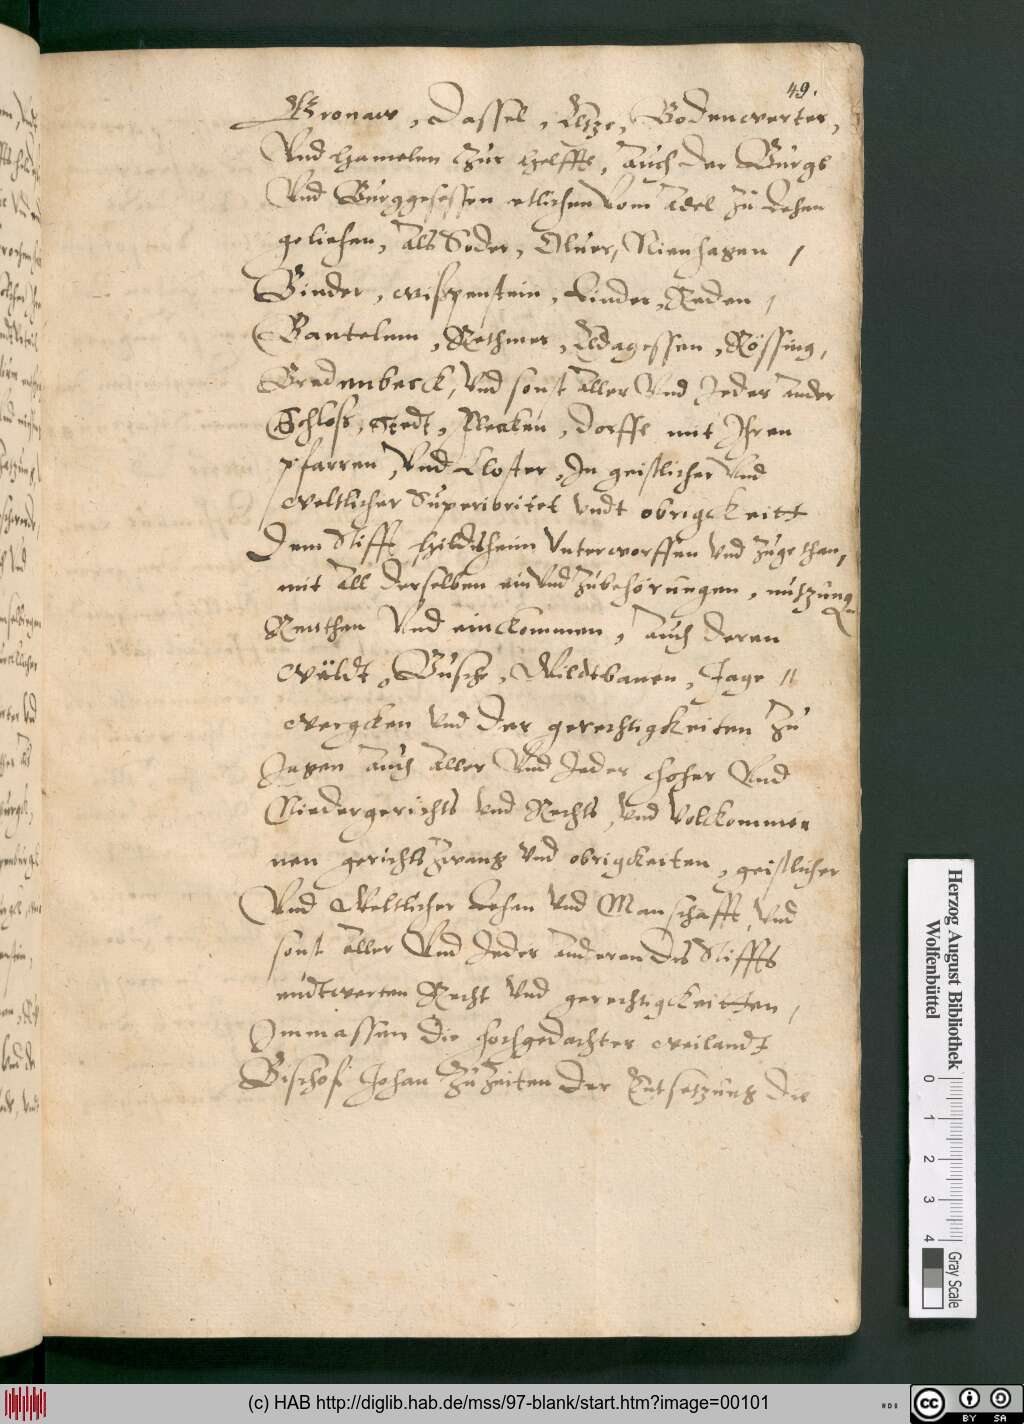 49.
Gronaw, Dassel, Eltze, Bodenwerter,
Vnd Hamelen zur Helffte, auch der Burgk
Vnd Burggesessen etlichen vom adel zu Lehen
geliehen, als Soder, Oluer, Nienhagen,
Binder, Wispenstein, Linder, Reden,
Bantelum, Rethmer, Eldagessen, Rössing,
Bredenbeck, Vnd sonst aller Vnd Jeder ander
Schloss, Stedt, Flecken, dorffe mit Ihren
pfarren, Vnd Closter, In geistlicher Vnd
weltlicher Superioritet vndt obrigckeitt
Dem Stifft Hildesheim Vnterworffen vnd zugethan,
mit all derselben ein vnd zubehorungen, nutzung
Renthen Vnd einckommen, auch deren
Wäldt, Busche, Wildtbanen, Jage
wergcken vnd der gerechtigkeiten zu
Jagen auch aller Vnd Jeder hoher Vnd
Niedergerichts vnd Rechts, vnd volckommen
nen gerichts zwang vnd obrigckeiten, geistlicher
Vnd Weltlicher Lehen vnd Manschafft, vnd
sonst aller Vnd Jeder anderen des Stiffts
endtwerten Recht vnd gerechtigckeitten,
Inmassen die hochgedachter weilandt
Bischoff Johan zu Zeiten der Entsetzung die
Herzog August Bibliothek
Wolfenbüttel
0 1 2 3 4
Gray Scale
(c) HAB http://diglib.hab.de/mss/97-blank/start.htm?image=00101
cc BY SA